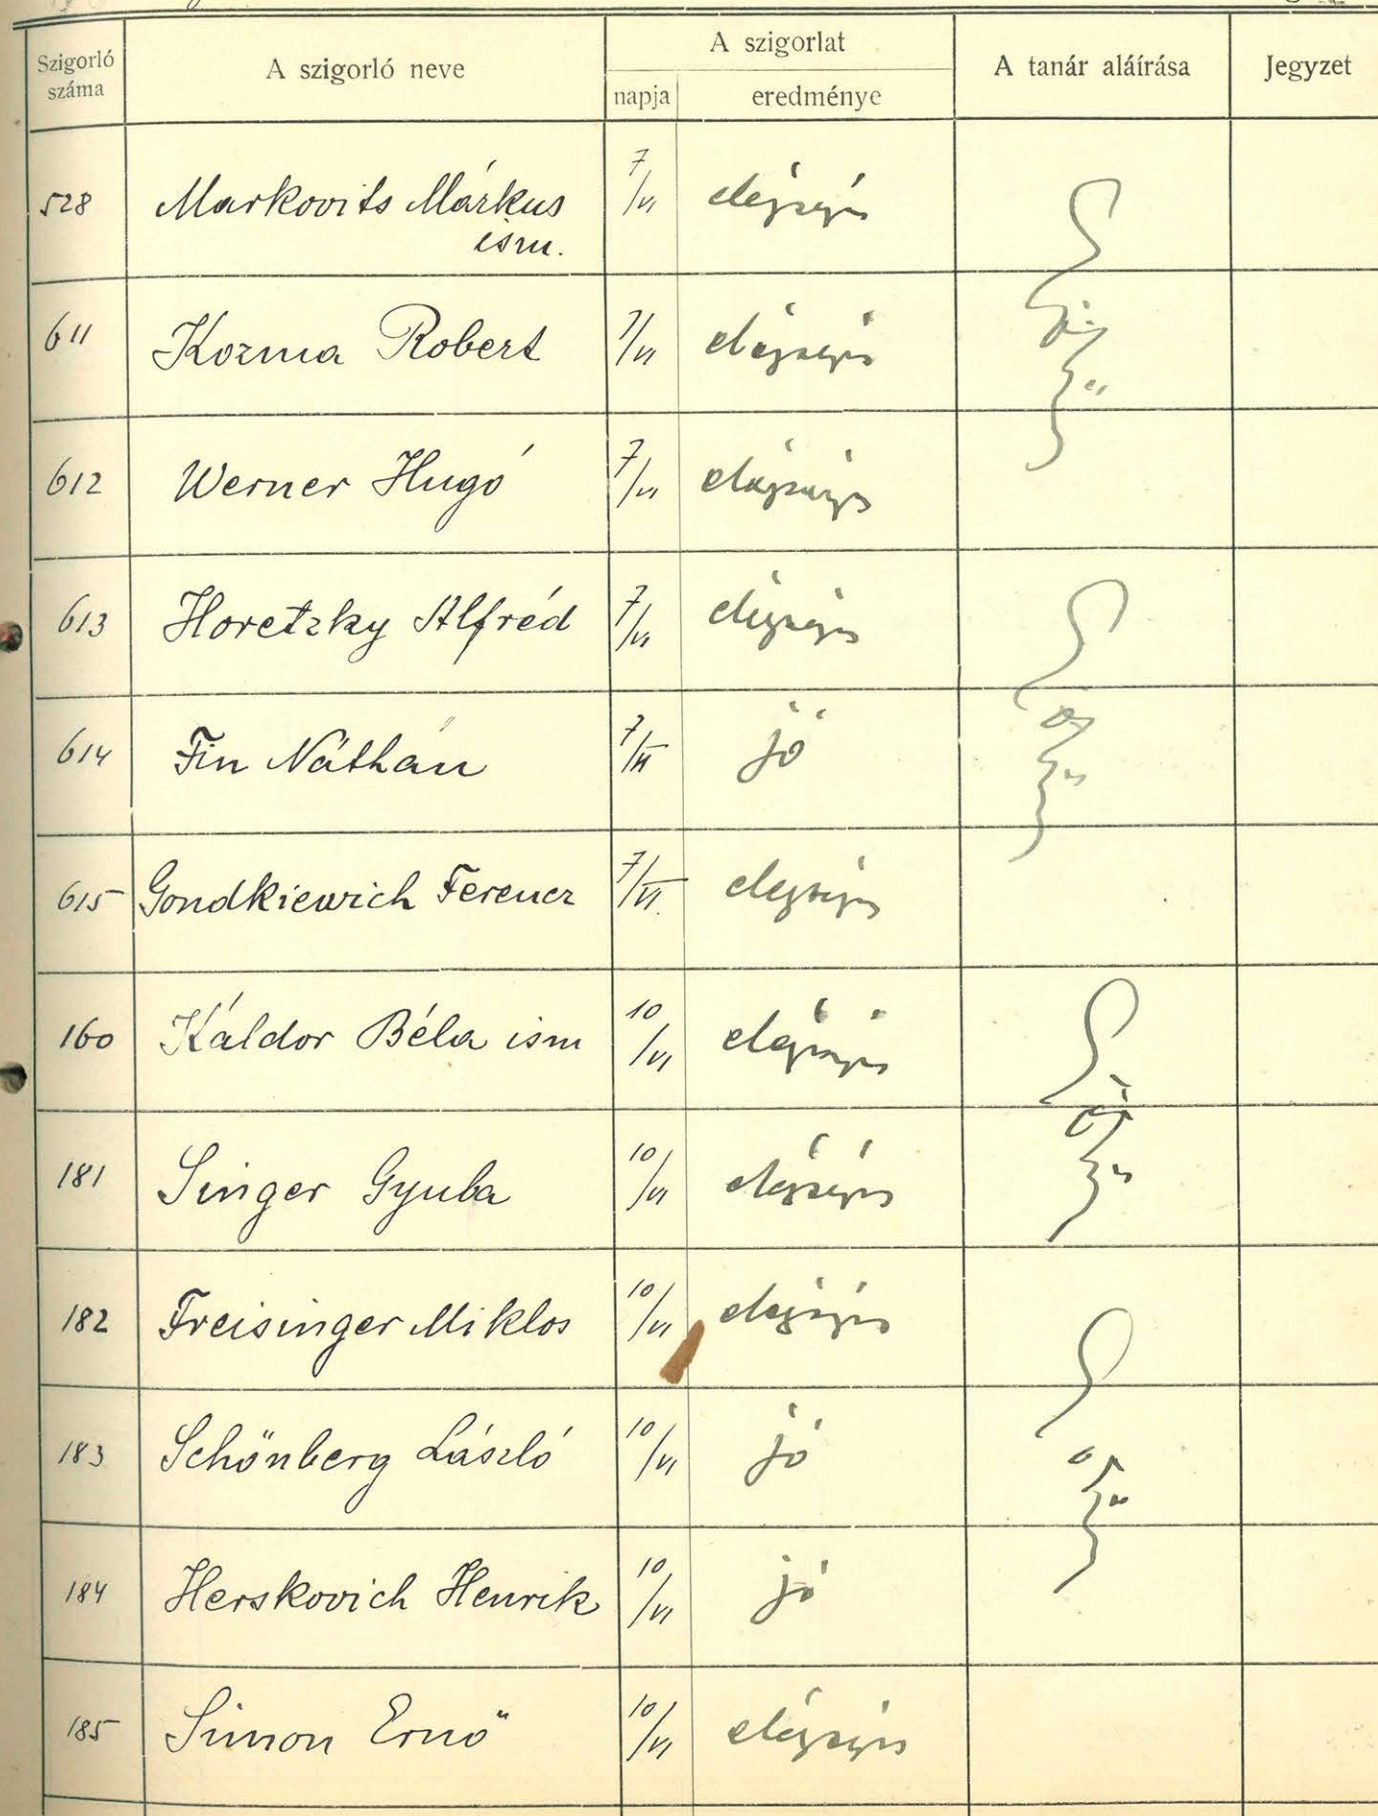 Szigorló száma A szigorló neve A szigorlat A tanár aláírása Jegyzet
napja eredménye
528 Markovits Márkus 7/VI elégséges
ism.
611 Kozma Robert 7/VI elégséges
612 Werner Hugó 7/VI elégséges
613 Horetzky Alfréd 7/VI elégséges
614 Fin Náthán 7/VI jó
615 Gondkiewich Ferencz 7/VI. elégséges
160 Káldor Béla ism 10/VI elégséges
181 Singer Gyula 10/VI elégséges
182 Freisinger Miklos 10/VI elégséges
183 Schönberg László 10/VI jó
184 Herskovich Henrik 10/VI jó
185 Simon Ernő 10/VI elégséges